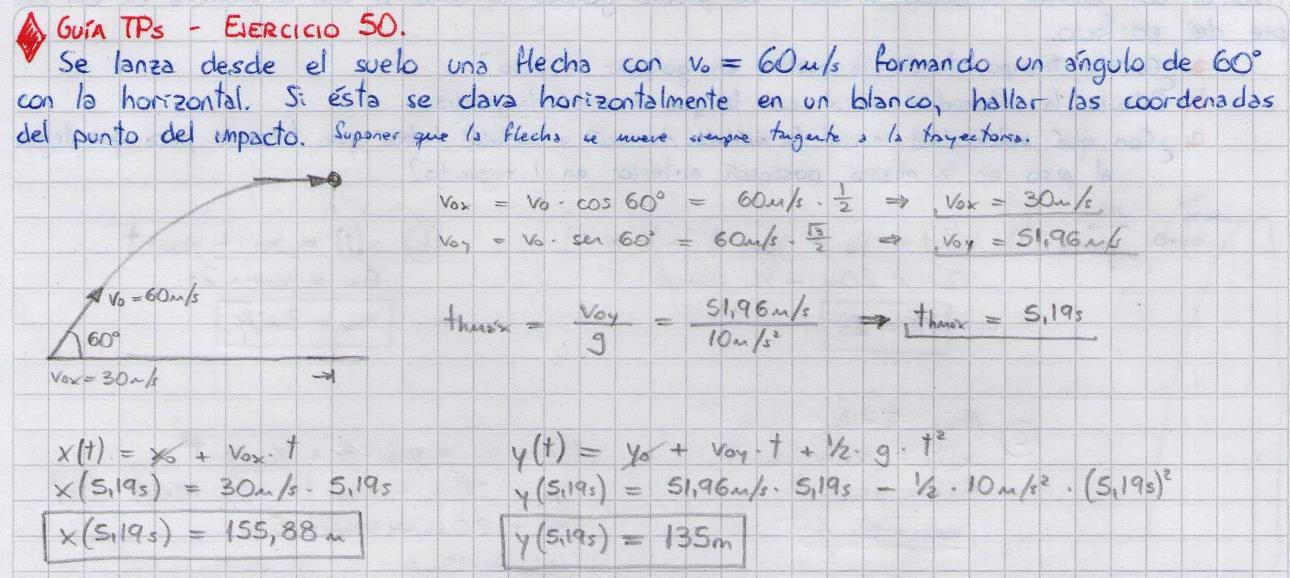 GUÍA TPs - EJERCICIO 50.
Se lanza desde el suelo una flecha con v₀ = 60m/s formando un ángulo de 60°
con la horizontal. Si ésta se clava horizontalmente en un blanco, hallar las coordenadas
del punto del impacto. Suponer que la flecha se mueve siempre tangente a la trayectoria.
v₀ₓ = v₀ · cos 60° = 60m/s · 1/2 ⇒ v₀ₓ = 30m/s
v₀y = v₀ · sen 60° = 60m/s · √3/2 ⇒ v₀y = 51,96m/s
v₀ = 60m/s
60°
v₀ₓ = 30m/s
thmáx = v₀y/g = 51,96m/s / 10m/s² ⇒ thmáx = 5,19s
x(t) = x₀ + v₀ₓ · t
x(5,19s) = 30m/s · 5,19s
x(5,19s) = 155,88m
y(t) = y₀ + v₀y · t + 1/2 · g · t²
y(5,19s) = 51,96m/s · 5,19s - 1/2 · 10m/s² · (5,19s)²
y(5,19s) = 135m